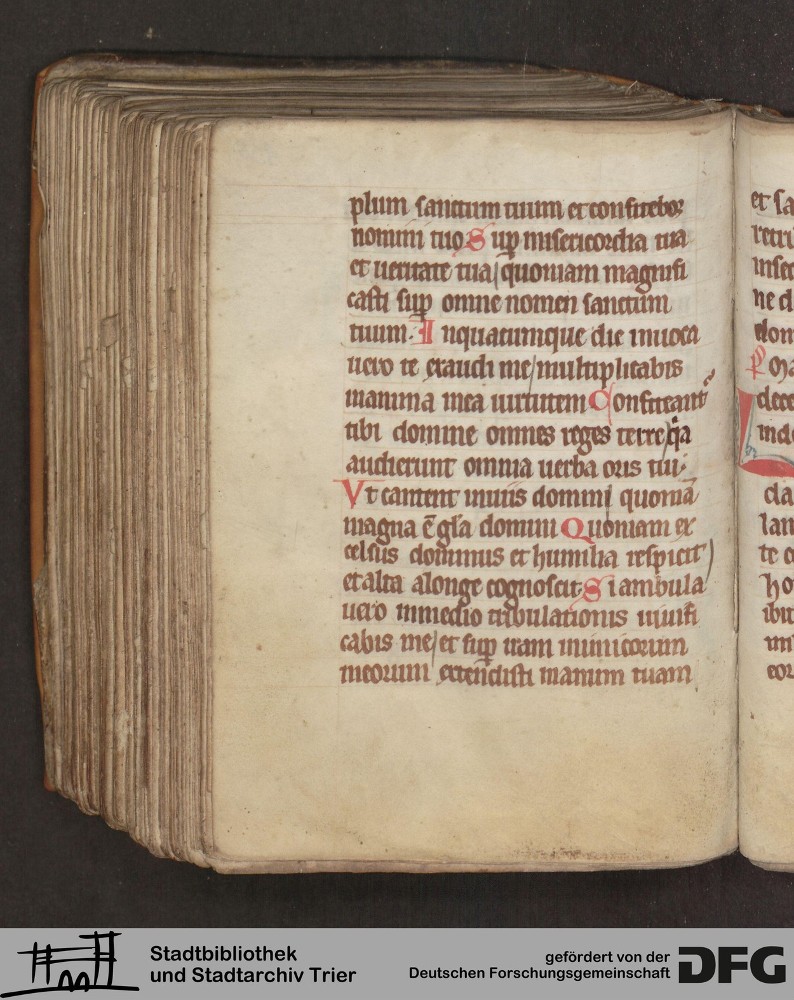 plum sanctum tuum et confitebor
nomini tuo S up̲ misericordia tua
et ueritate tua/ quoniam magnifi
casti sup̲ omne nomen sanctum
tuum. I nquacumque die inuoca
uero te exaudi me/ multiplicabis
inanima mea uirtutem C onfiteant᷒
tibi domine omnes reges terre/ qͥa
audierunt omnia uerba oris tui.
V t cantent inuiis domini/ quoniā
magna ē gl̄a domini Q uoniam ex
celsus dominus et humilia respicit/
et alta alonge cognoscit. S i ambula
uero inmedio tribulationis uiuifi
cabis me/ et sup̲ iram inimicorum
meorum extendisti manum tuam
et sa
retri
ne d
dom
dece
cla
te
ho
Stadtbibliothek
und Stadtarchiv Trier
gefördert von der
Deutschen Forschungsgemeinschaft
DFG